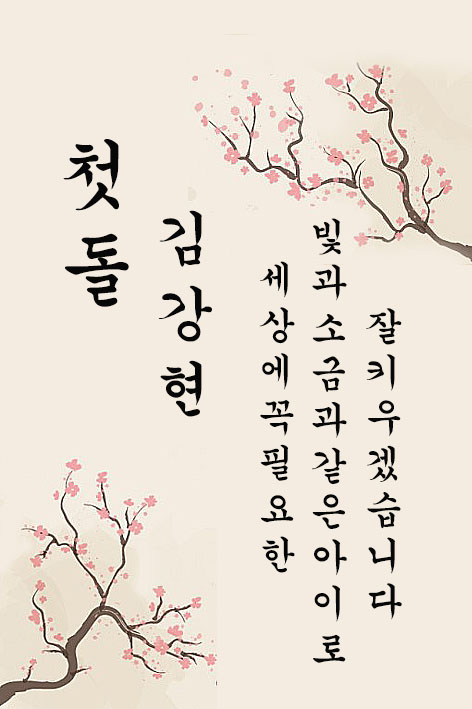 첫돌
김강현
세상에꼭필요한
빛과소금과같은아이로
잘키우겠습니다